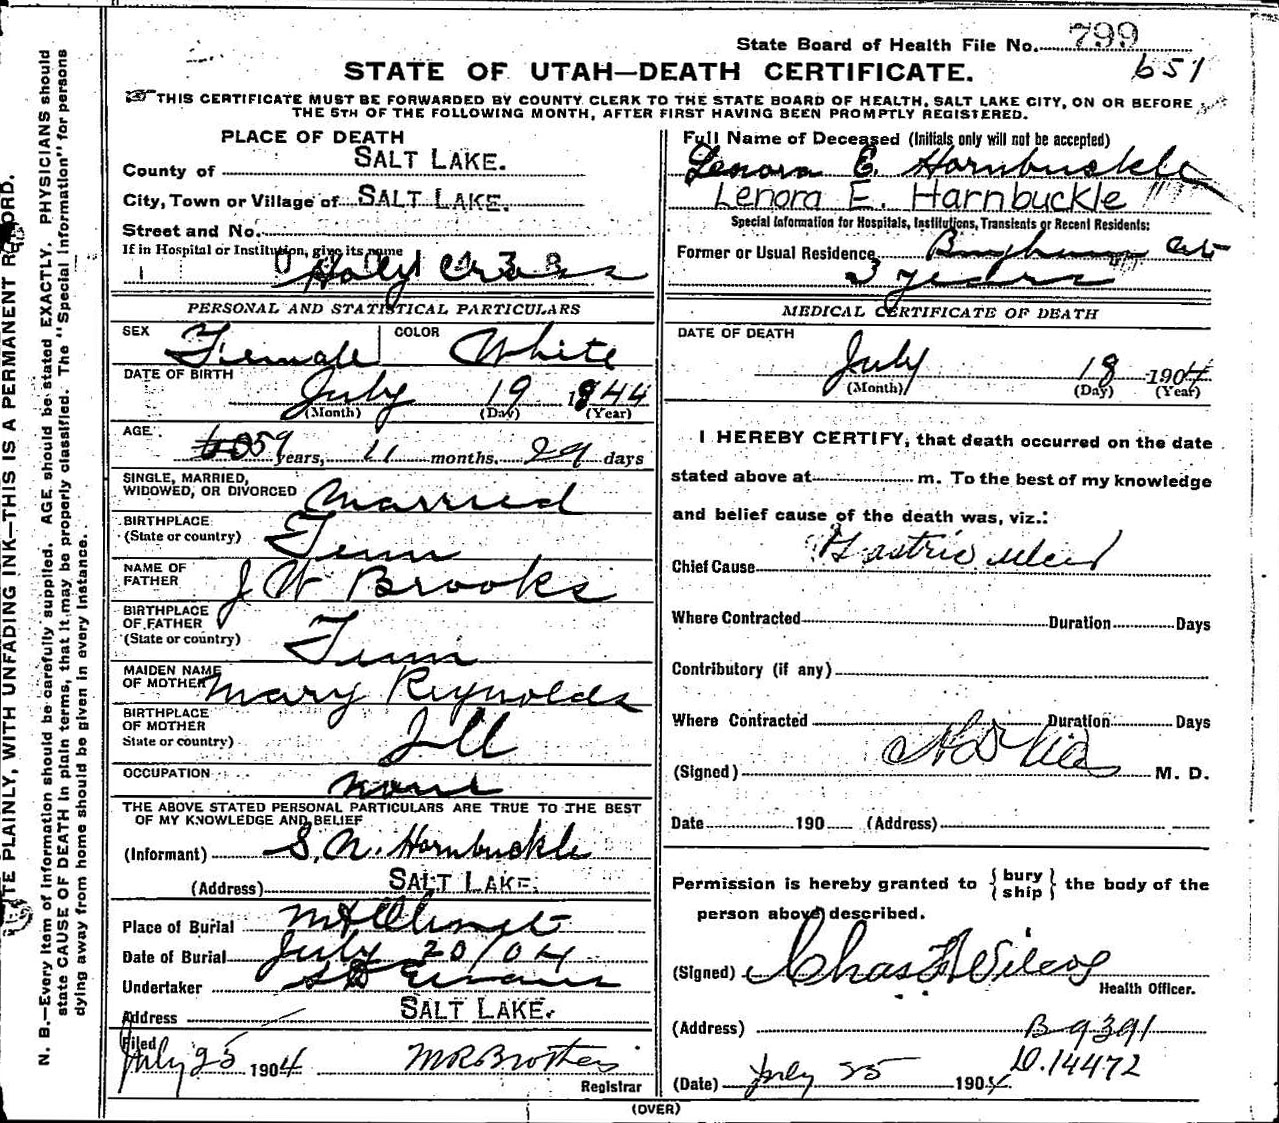 State Board of Health File No. 799
651
STATE OF UTAH—DEATH CERTIFICATE.
THIS CERTIFICATE MUST BE FORWARDED BY COUNTY CLERK TO THE STATE BOARD OF HEALTH, SALT LAKE CITY, ON OR BEFORE
THE 5TH OF THE FOLLOWING MONTH, AFTER FIRST HAVING BEEN PROMPTLY REGISTERED.
PLACE OF DEATH
County of SALT LAKE.
City, Town or Village of SALT LAKE.
Street and No.
If in Hospital or Institution, give its name
Holy Cross
PERSONAL AND STATISTICAL PARTICULARS
SEX Female COLOR White
DATE OF BIRTH
July 19 1844
(Month) (Day) (Year)
AGE 59 years, 11 months. 29 days
SINGLE, MARRIED,
WIDOWED, OR DIVORCED Married
BIRTHPLACE
(State or country) Tenn
NAME OF
FATHER J W Brooks
BIRTHPLACE
OF FATHER
(State or country) Tenn
MAIDEN NAME
OF MOTHER Mary Reynolds
BIRTHPLACE
OF MOTHER
State or country) Ill
OCCUPATION none
THE ABOVE STATED PERSONAL PARTICULARS ARE TRUE TO THE BEST
OF MY KNOWLEDGE AND BELIEF
(Informant) S. N. Hornbuckle
(Address) SALT LAKE.
Place of Burial Mt Olivet
Date of Burial July 20/04
Undertaker S D Evans
Address SALT LAKE.
Filed
July 25 1904 M R Brothers
Registrar
Full Name of Deceased (Initials only will not be accepted)
Lenora E. Hornbuckle
Lenora E. Harnbuckle
Special Information for Hospitals, Institutions, Transients or Recent Residents:
Former or Usual Residence Bingham
3 years
MEDICAL CERTIFICATE OF DEATH
DATE OF DEATH
July 18 1904
(Month) (Day) (Year)
I HEREBY CERTIFY, that death occurred on the date
stated above at m. To the best of my knowledge
and belief cause of the death was, viz.:
Chief Cause Gastric ulcer
Where Contracted Duration Days
Contributory (if any)
Where Contracted Duration Days
(Signed) M. D.
Date 190 (Address)
Permission is hereby granted to { bury ship } the body of the
person above described.
(Signed) Chas F Wilcox
Health Officer.
(Address) B 9391
D. 14472
(Date) July 25 1904
(OVER)
N. B.—Every item of information should be carefully supplied. AGE should be stated EXACTLY. PHYSICIANS should
state CAUSE OF DEATH in plain terms, that it may be properly classified. The "Special Information" for persons
dying away from home should be given in every instance.
PLAINLY, WITH UNFADING INK—THIS IS A PERMANENT RECORD.